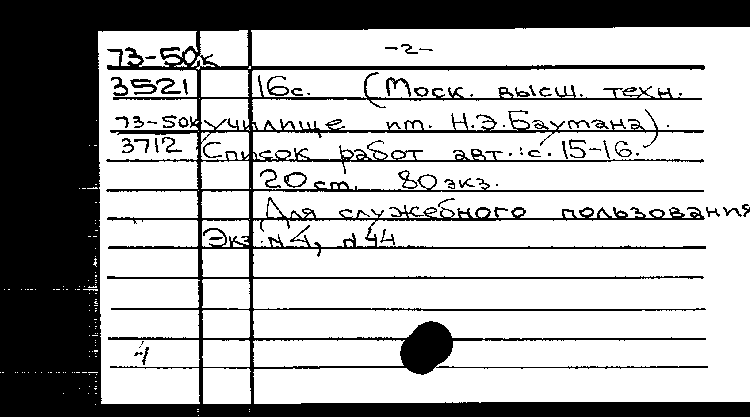 73-50к -2-
3521 16с. (Моск. высш. техн.
73-50к училище им. Н.Э.Баумана).
3712 Список работ авт.: с. 15-16.
20 cm. 80 экз.
Для служебного пользования
Экз. N 4, N 44
4